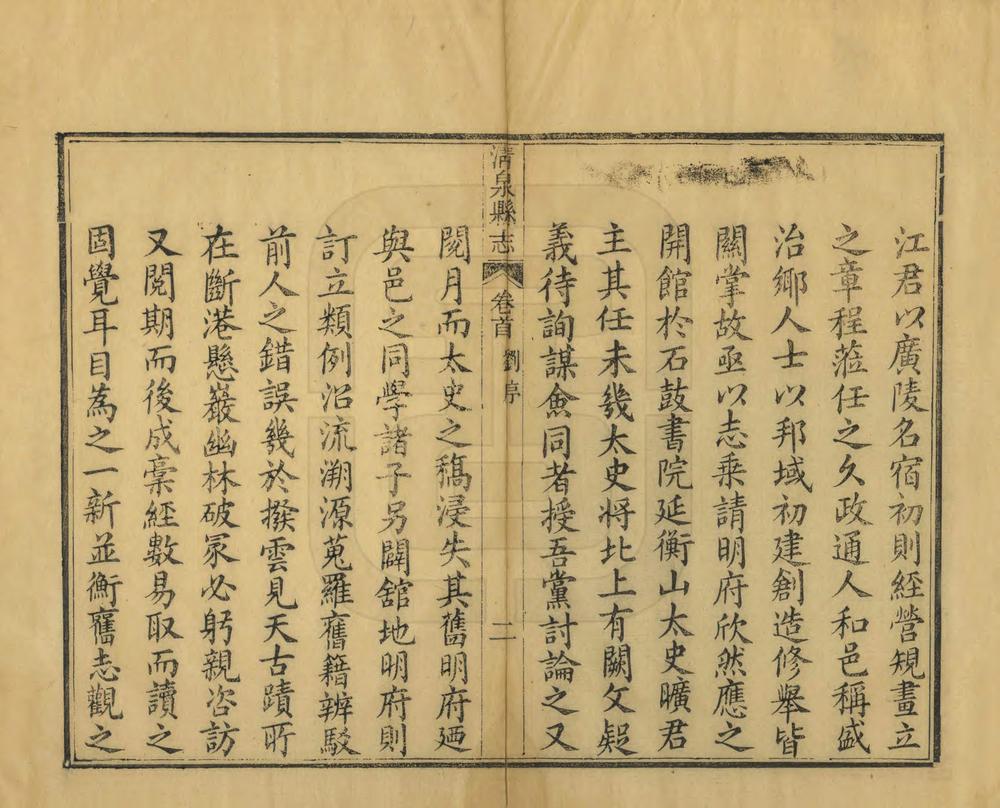 江君以廣陵名宿初則經營規畫立
之章程蒞任之久政通人和邑稱盛
治鄉人士以邦域初建創造修舉皆
關掌故亟以志乘請明府欣然應之
開館於石鼓書院延衡山太史曠君
主其任未幾太史將北上有闕文疑
義待詢謀僉同者授吾黨討論之又
清泉縣志 卷首 劉序 二
閱月而太史之稿浸失其舊明府廼
與邑之同學諸子另闢舘地明府則
訂立類例沿流溯源蒐羅舊籍辨駁
前人之錯誤幾於撥雲見天古蹟所
在斷港懸巖幽林破冢必躬親咨訪
又閱期而後成稾經數易取而讀之
固覺耳目為之一新並衡舊志觀之